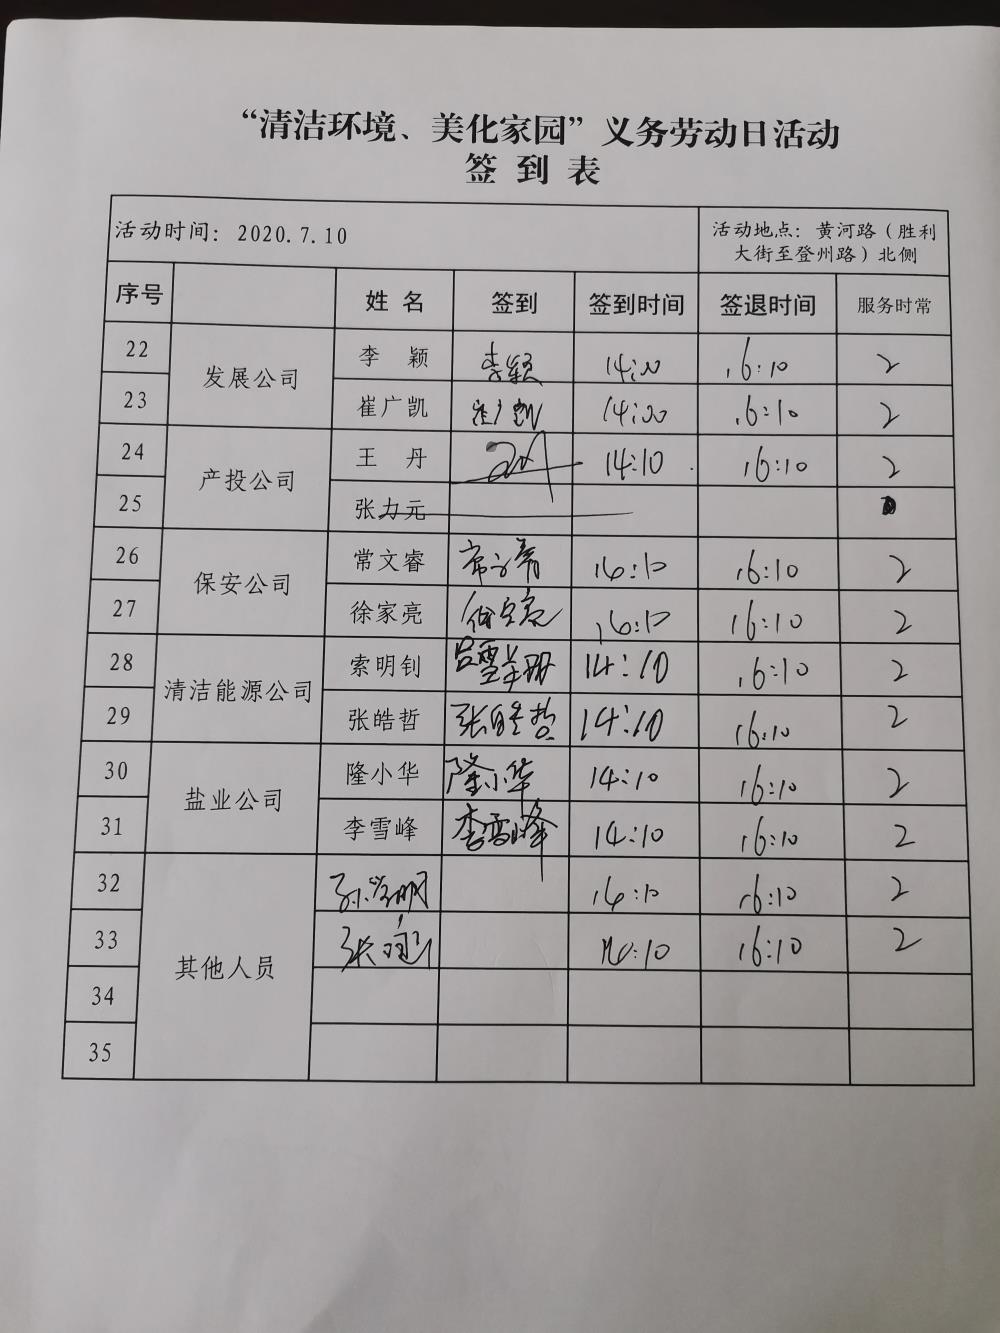 “清洁环境、美化家园”义务劳动日活动
签 到 表
活动时间：2020.7.10 活动地点：黄河路（胜利大街至登州路）北侧
序号 姓 名 签到 签到时间 签退时间 服务时常
22 发展公司 李 颖 李颖 14:00 16:10 2
23 崔广凯 崔广凯 14:00 16:10 2
24 产投公司 王 丹 14:10 16:10 2
25 张力元
26 保安公司 常文睿 14:10 16:10 2
27 徐家亮 徐家亮 14:10 16:10 2
28 清洁能源公司 索明钊 14:10 16:10 2
29 张皓哲 张皓哲 14:10 16:10 2
30 盐业公司 隆小华 隆小华 14:10 16:10 2
31 李雪峰 李雪峰 14:10 16:10 2
32 其他人员 14:10 16:10 2
33 14:10 16:10 2
34
35